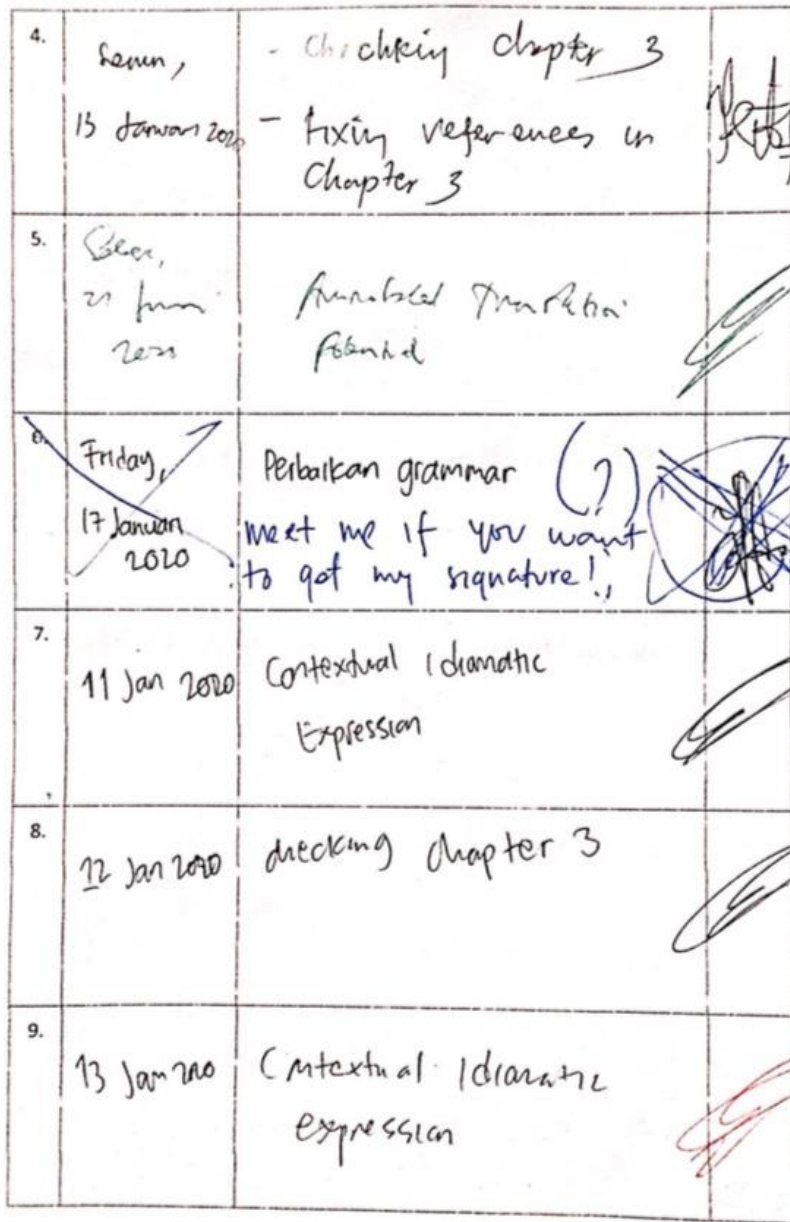 4.
Senin,
13 Januari 2020
- Checking chapter 3
- Fixing references in
Chapter 3
5.
21
2020
Annotated Translation
6.
Friday,
17 Januari
2020
Perbaikan grammar (?)
meet me if you want
to get my signature!
7.
11 Jan 2020
Contextual Idiomatic
Expression
8.
12 Jan 2020
checking chapter 3
9.
13 Jan 2020
Contextual Idiomatic
expression